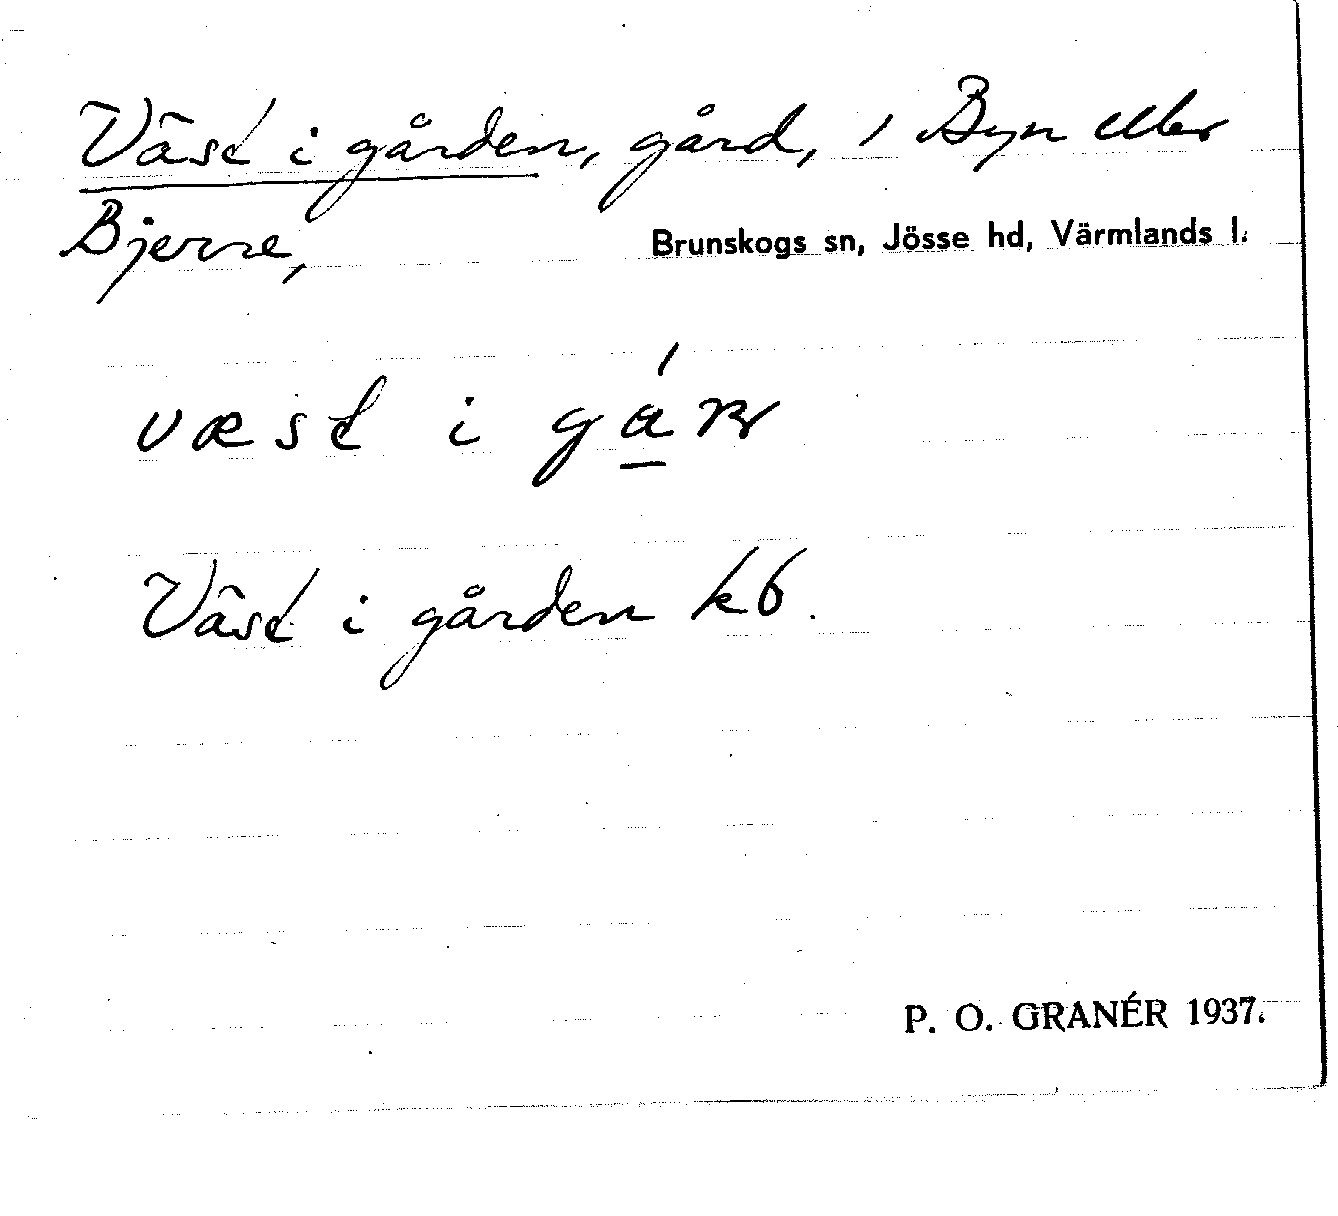 Väst i gården, gård, i Byn eller
Bjerne, Brunskogs sn, Jösse hd, Värmlands l.
væst i
Väst i gården kb.
P. O. GRANÉR 1937.